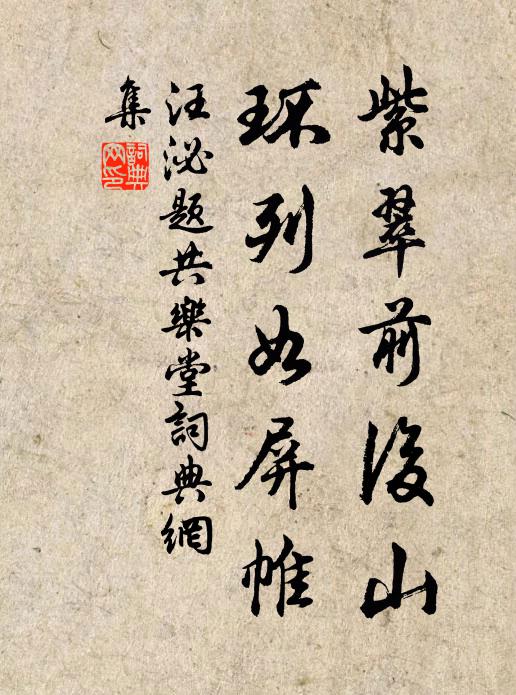 紫翠前後山
环列如屏帷
汪泌题共樂堂詞典網
集
詞典網印